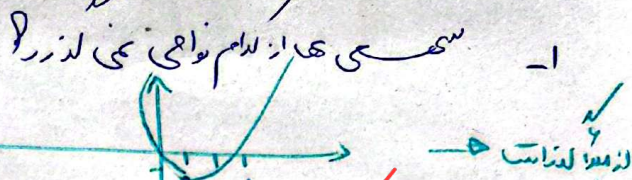 ۱- سهمی های از کدام نواحی نمی گذرد؟
از مبدأ گذراست